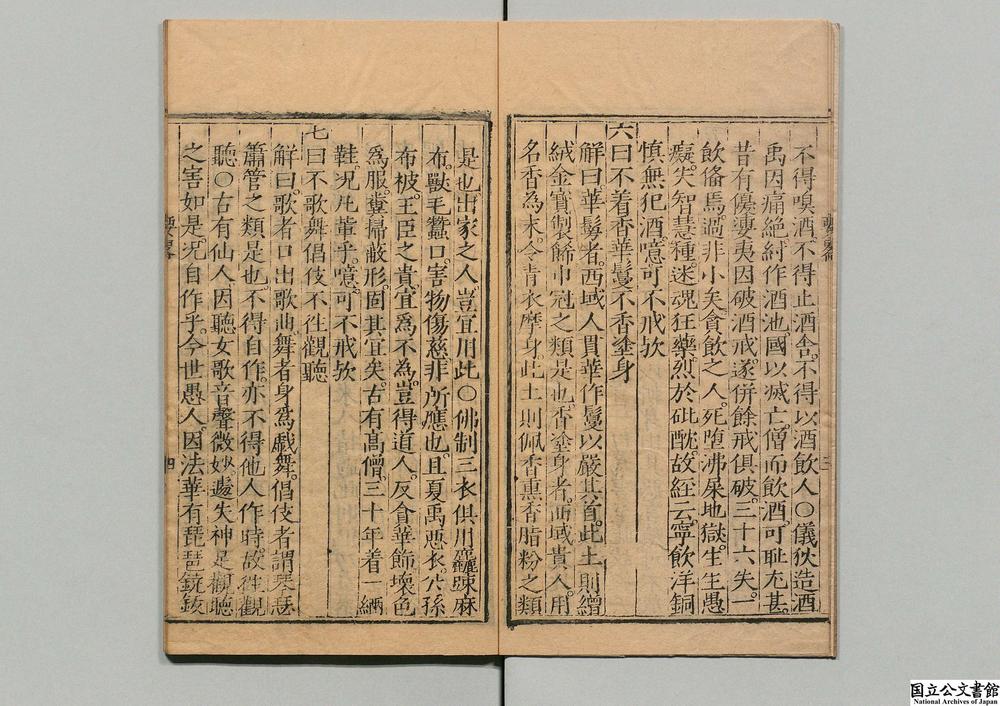 不得嗅酒不得止酒舍不得以酒飲人〇儀狄造酒
禹因痛絶紂作酒池國以滅亡僧而飲酒可恥尤甚
昔有優婆夷因破酒戒遂併餘戒俱破三十六失一
飲俻焉過非小矣貪飲之人死墮沸屎地獄生生愚
癡失智慧種迷魂狂藥烈於砒酖故經云寧飲洋銅
慎無犯酒噫可不戒歟
六曰不着香華鬘不香塗身
解曰華鬘者西域人貫華作鬘以嚴其首此土則繒
絨金寶製飾巾冠之類是也香塗身者西域貴人用
名香為末令青衣摩身此土則佩香熏香脂粉之類
是也出家之人豈宜用此〇佛制三衣俱用麤踈麻
布獸毛蠶口害物傷慈非所應也且夏禹惡衣公孫
布被王臣之貴宜爲不為豈得道人反貪華飾壞色
爲服糞掃蔽形固其宜矣古有髙僧三十年着一緉
鞋況凡輩乎噫可不戒歟
七曰不歌舞倡伎不徃觀聽
解曰歌者口出歌曲舞者身爲戯舞倡伎者謂琴瑟
簫管之類是也不得自作亦不得他人作時故徃觀
聽〇古有仙人因聽女歌音聲微妙遽失神足觀聽
之害如是况自作乎今世愚人因法華有琵琶鐃鈸
四
国立公文書館
National Archives of Japan